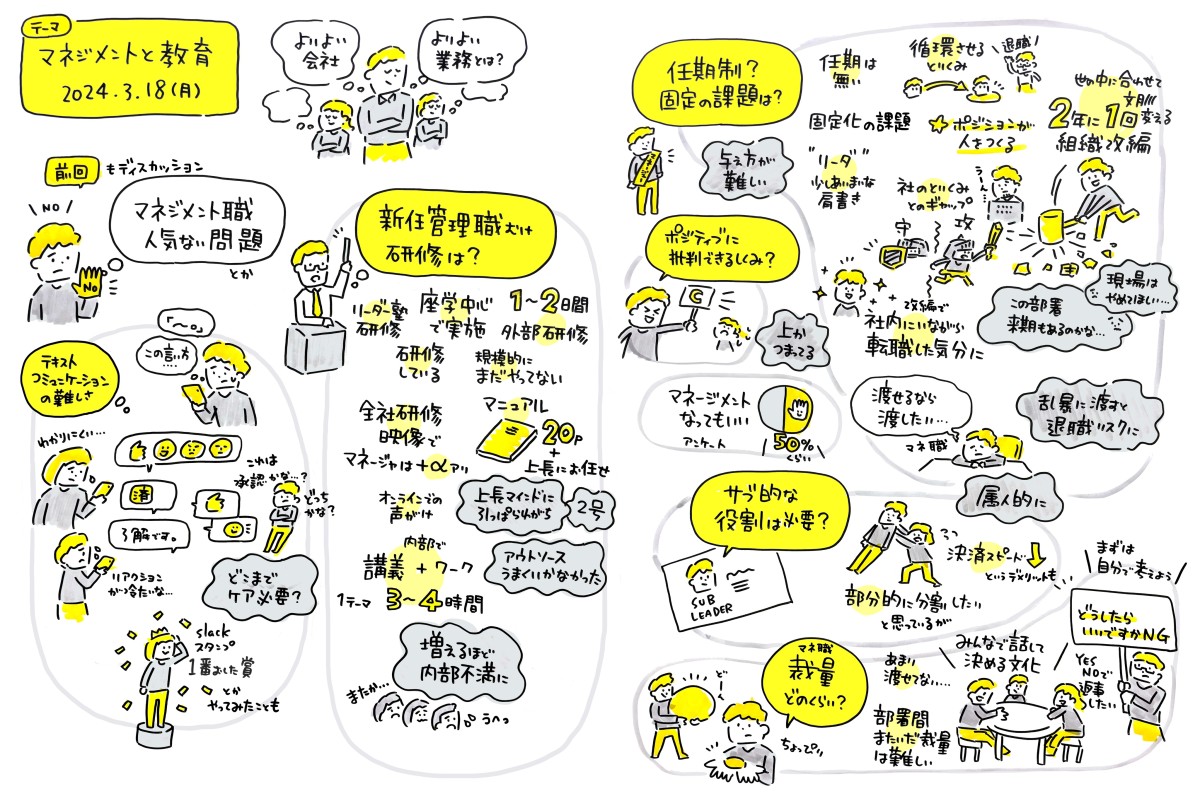 テーマ
マネジメントと教育
2024.3.18(月)
よりよい
会社
よりよい
業務とは?
前回
もディスカッション
NO
NO
マネジメント職
人気ない問題
とか
「〜。」
この言い方…
テキスト
コミュニケーション
の難しさ
わかりにくい…
済
了解です。
これは
承認かな…?
どっち
かな?
リアクション
がつ冷たいな…
どこまで
ケア必要?
slack
スタンプ
1番おした賞
とか
やってみたことも
新任管理職むけ
研修は?
リーダー塾
研修
座学中心
で実施
1〜2日間
外部研修
研修
している
規模的に
まだやってない
全社研修
映像で
マネージャは+αアリ
マニュアル
20P
+
上長にお任せ
オンラインでの
声がけ
上長マインドに
引っぱられがち
2号
内部で
講義+ワーク
1テーマ 3〜4時間
アウトソース
うまくいかなかった
増えるほど
内部不満に
またか…
うへっ
任期制?
固定の課題は?
任期は
無い
循環させる
とりくみ
退職!
世の中に合わせて
2年に1回変える
組織改編
固定化の課題
ポジションが
人をつくる
与え方が
難しい
マネージャー
"リーダ"
少しあいまいな
肩書き
社のとりくみ
とのギャップ
うーん
守
攻
改編で
社内にいながら
転職した気分に
この部署
来期もあるのかな…
現場は
やめてほし…
ポジティブに
批判できるしくみ?
C
上が
つまってる
マネージメント
なってもいい
アンケート
50%
くらい
渡せるなら
渡したい…
マネ職
乱暴に渡すと
退職リスクに
属人的に
サブ的な
役割は必要?
SUB
LEADER
決済スピード
というデメリットも
部分的に分割したい
と思っているが
まずは
自分で考てよう
どうしたら
いいですかNG
YES
NOで
返事
したい
マネ職
裁量
どのくらい?
どーん
ちょっぴり
あまり
渡せてない……
みんなで話して
決める文化
部署間
またいだ裁量
は難しい